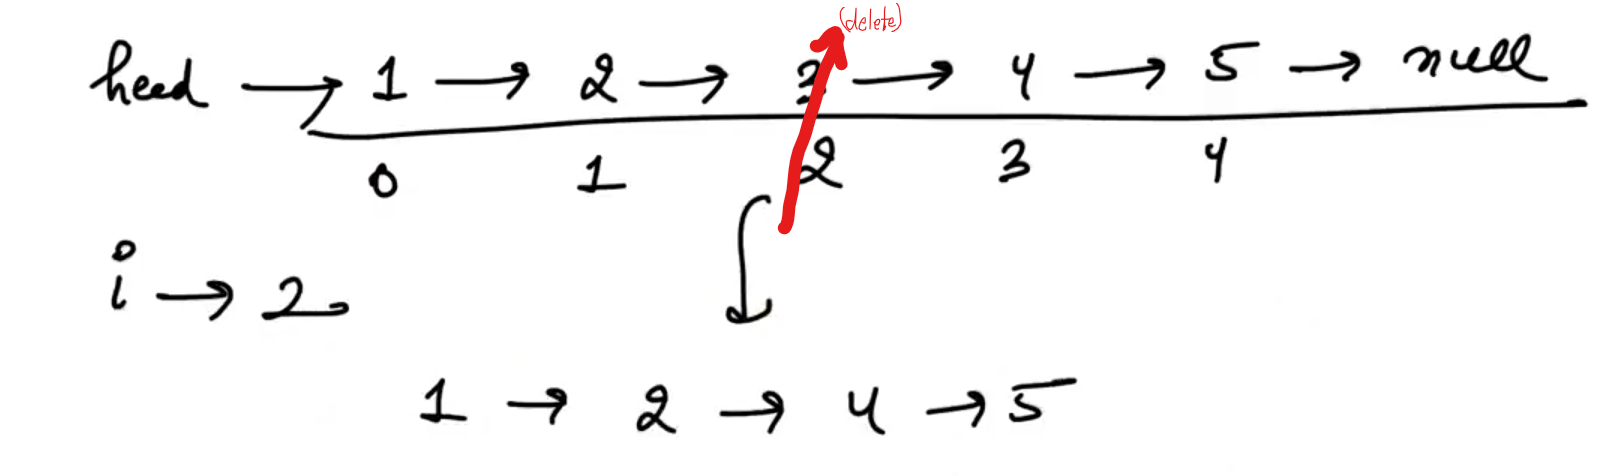 (delete)
head → 1 → 2 → 3 → 4 → 5 → null
0 1 2 3 4
i → 2
1 → 2 → 4 → 5